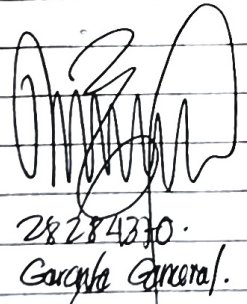 28284370.
Garante General.